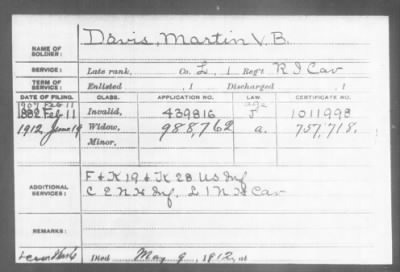 Davis, Martin V. B.
NAME OF SOLDIER:
SERVICE: Late rank, Co. L, 1 Reg't R I Cav
TERM OF SERVICE: Enlisted , 1 Discharged , 1
DATE OF FILING. CLASS. APPLICATION NO. LAW. CERTIFICATE NO.
1907 Feb 11 age
1882 Feb 11 Invalid, 439816 J 1011998
1912, June 19 Widow, 988,762 a. 757,718.
Minor,
ADDITIONAL SERVICES:
F & K 19 & K 28 US Inf
C 2 N H Inf, L 1 N H Cav
REMARKS:
Died May 9, 1912, at